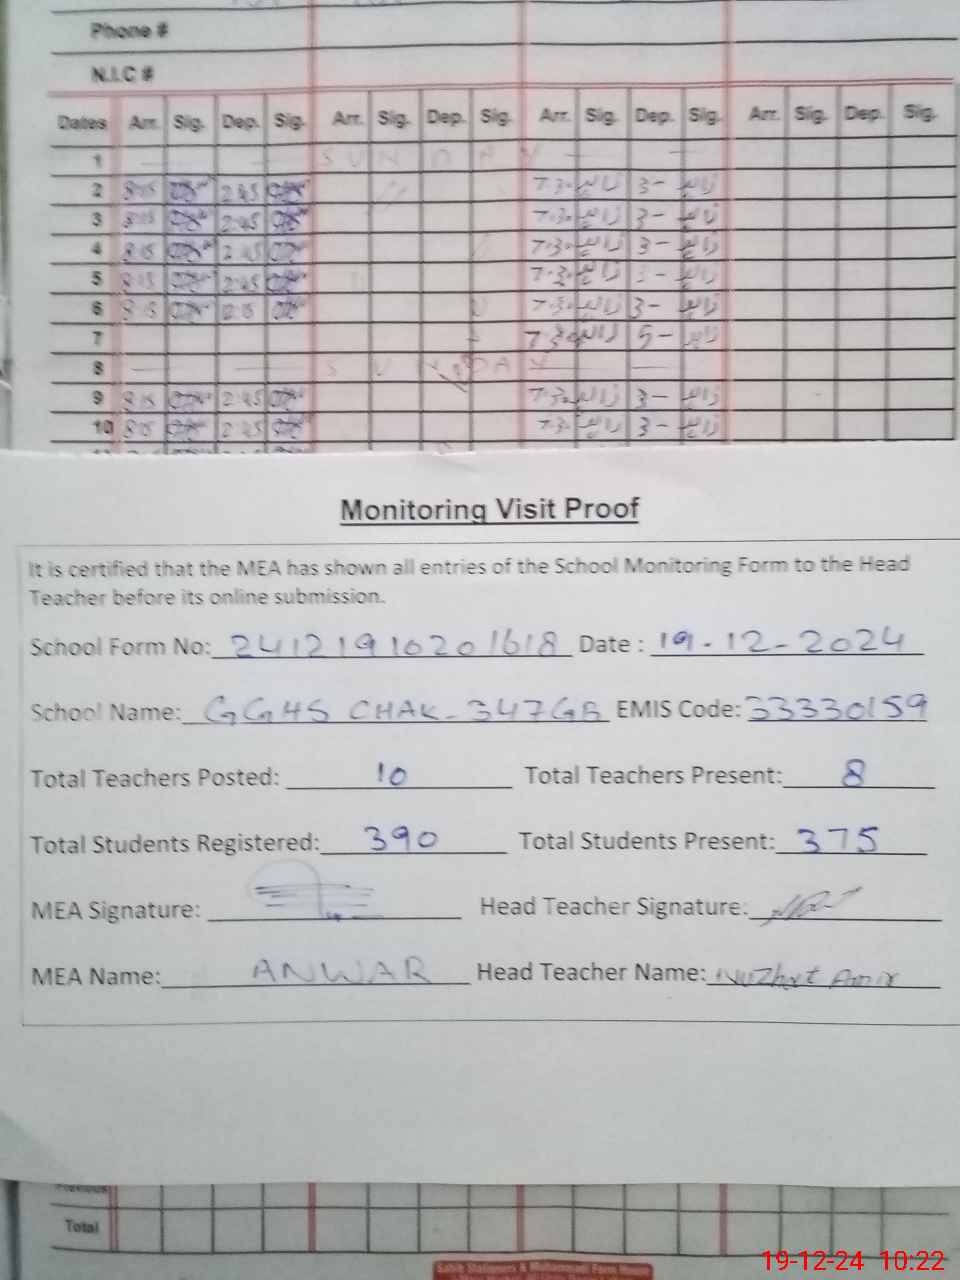 Phone #
N.I.C #
Dates Arr. Sig. Dep. Sig. Arr. Sig. Dep. Sig. Arr. Sig. Dep. Sig. Arr. Sig. Dep. Sig.
1 — — S U N D A Y — —
2 8:15 2:45 7:30 3-
3 8:15 2:45 7:30 3-
4 8:15 2:45 7:30 3-
5 8:15 2:45 7:30 3-
6 8:15 7:30 3-
7 7:30 5-
8 — — S U N D A Y — —
9 8:15 2:45 7:30 3-
10 8:15 2:45 7:30 3-
Monitoring Visit Proof
It is certified that the MEA has shown all entries of the School Monitoring Form to the Head
Teacher before its online submission.
School Form No: 24121910201618 Date : 19-12-2024
School Name: GGHS CHAK-347GB EMIS Code: 33330159
Total Teachers Posted: 10 Total Teachers Present: 8
Total Students Registered: 390 Total Students Present: 375
MEA Signature: Head Teacher Signature:
MEA Name: ANWAR Head Teacher Name: Nuzhat Amir
Previous
Total
19-12-24 10:22